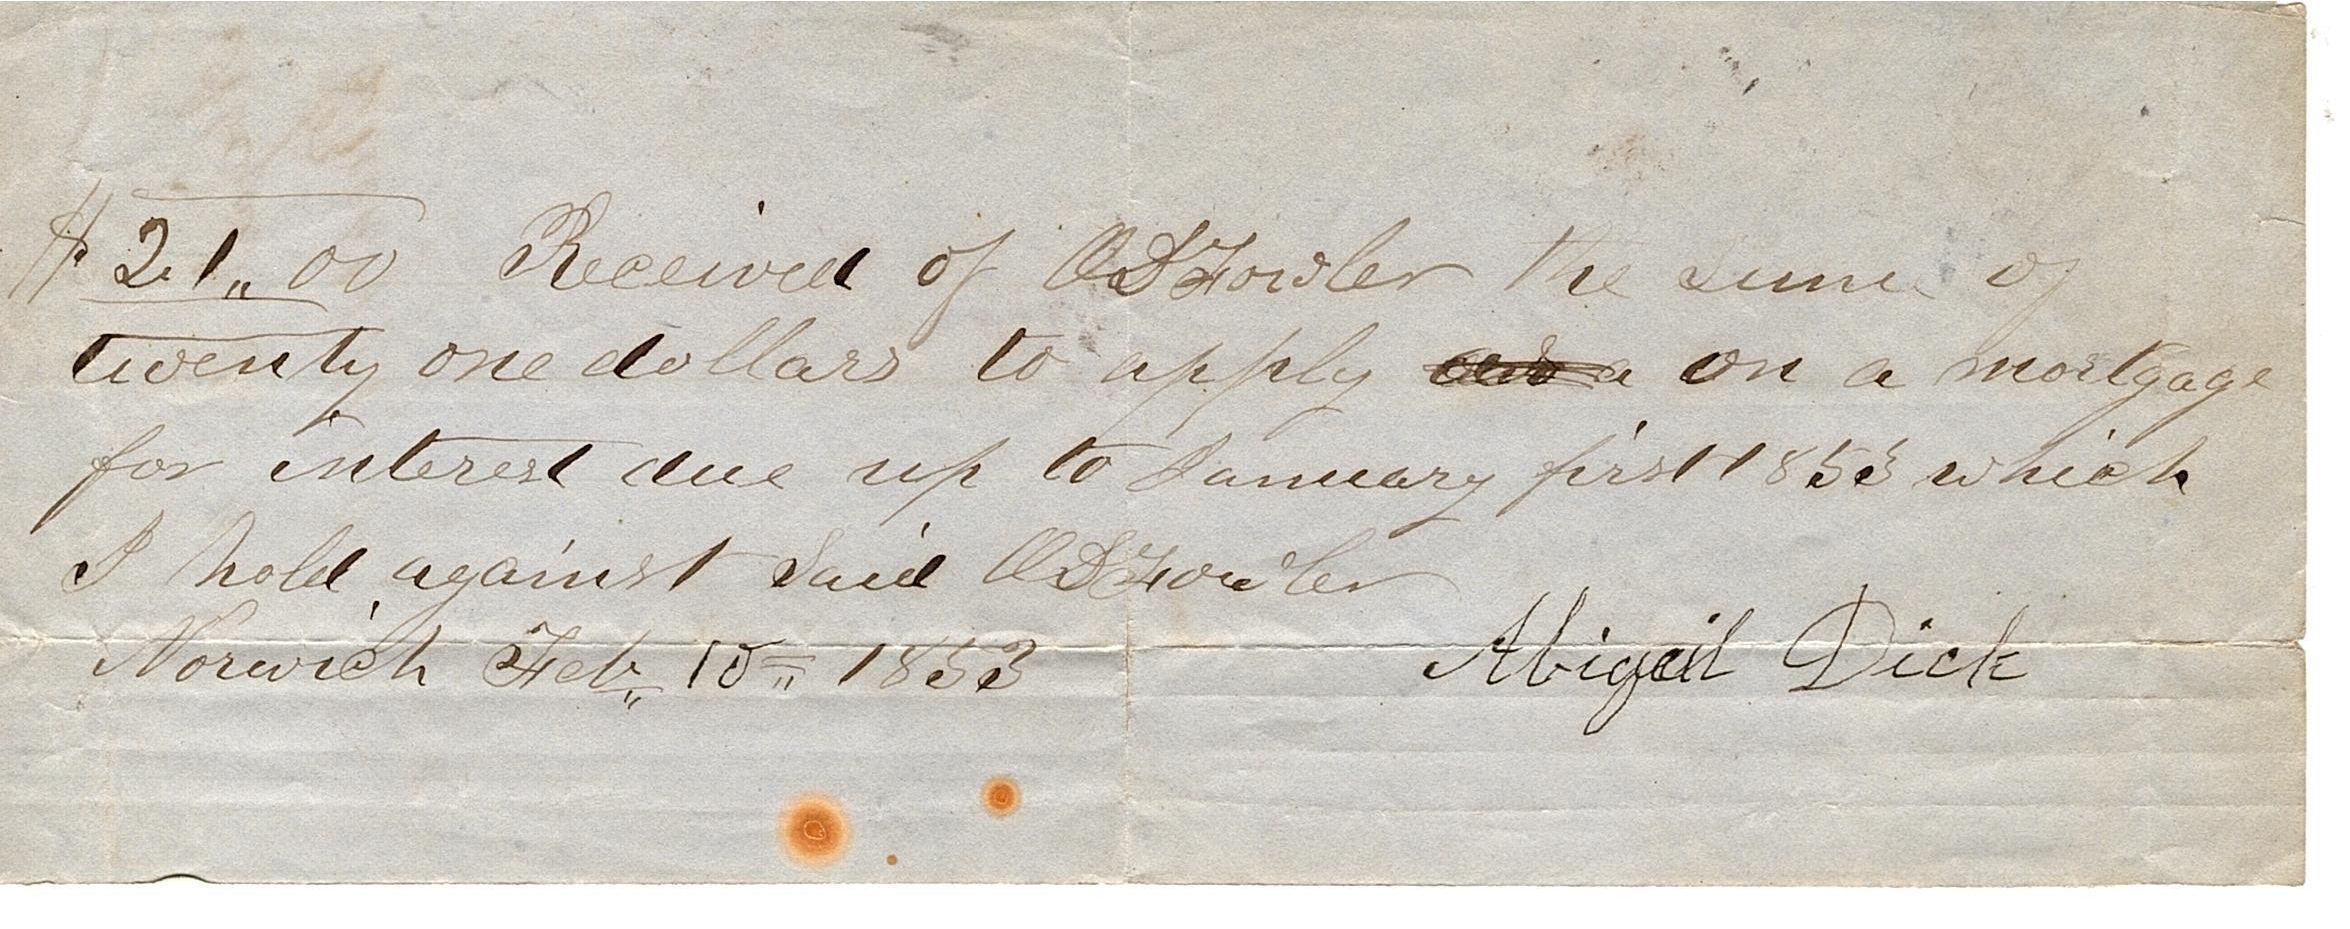 $21,,00 Received of O D Fowler the sume of
twenty one dollars to apply a on a mortgage
for interest due up to January first 1853 which
I hold against said O D Fowler
Norwich Feb,, 10,, 1853 Abigail Dick